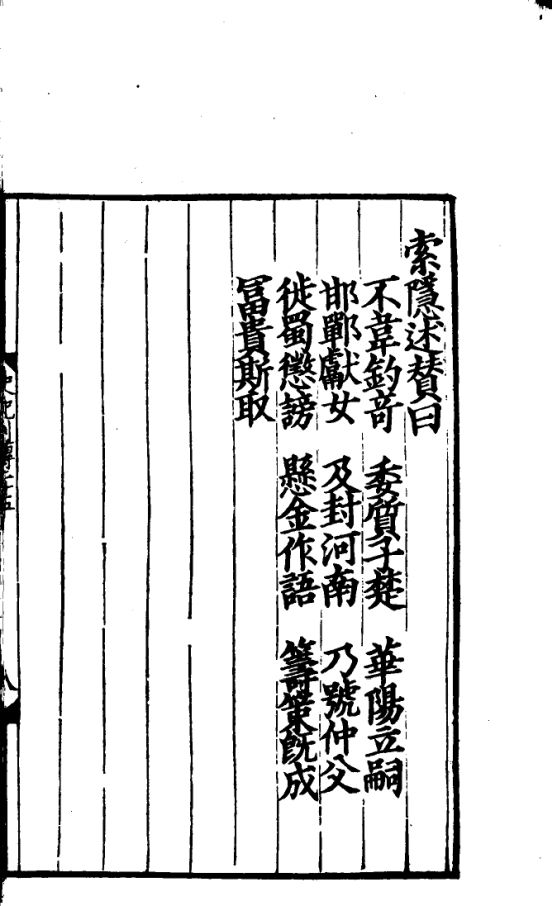 索隱述贊曰
不韋釣竒　委質子楚　華陽立嗣
邯鄲獻女　及封河南　乃號仲父
徙蜀懲謗　懸金作語　籌策旣成
冨貴斯取